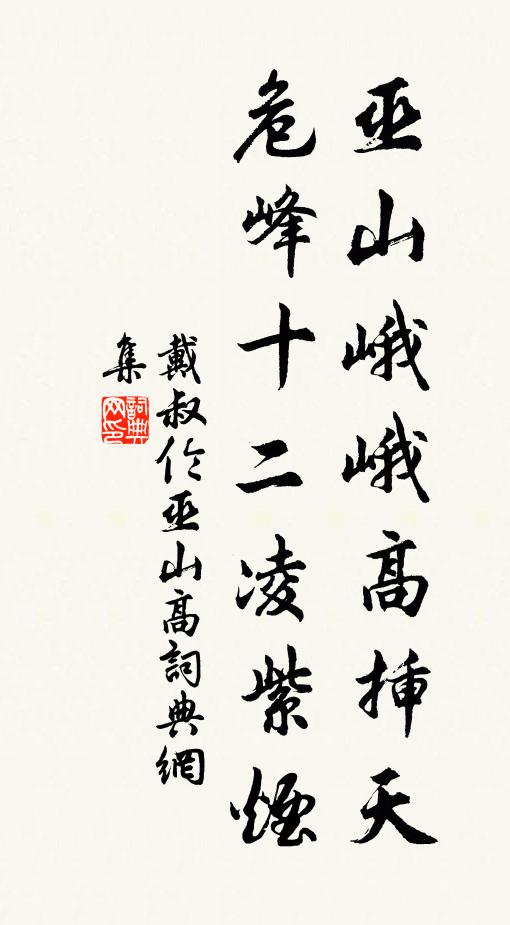 巫山峨峨高插天
危峰十二凌紫煙
戴叔伦巫山高詞典網
集
詞典
网印